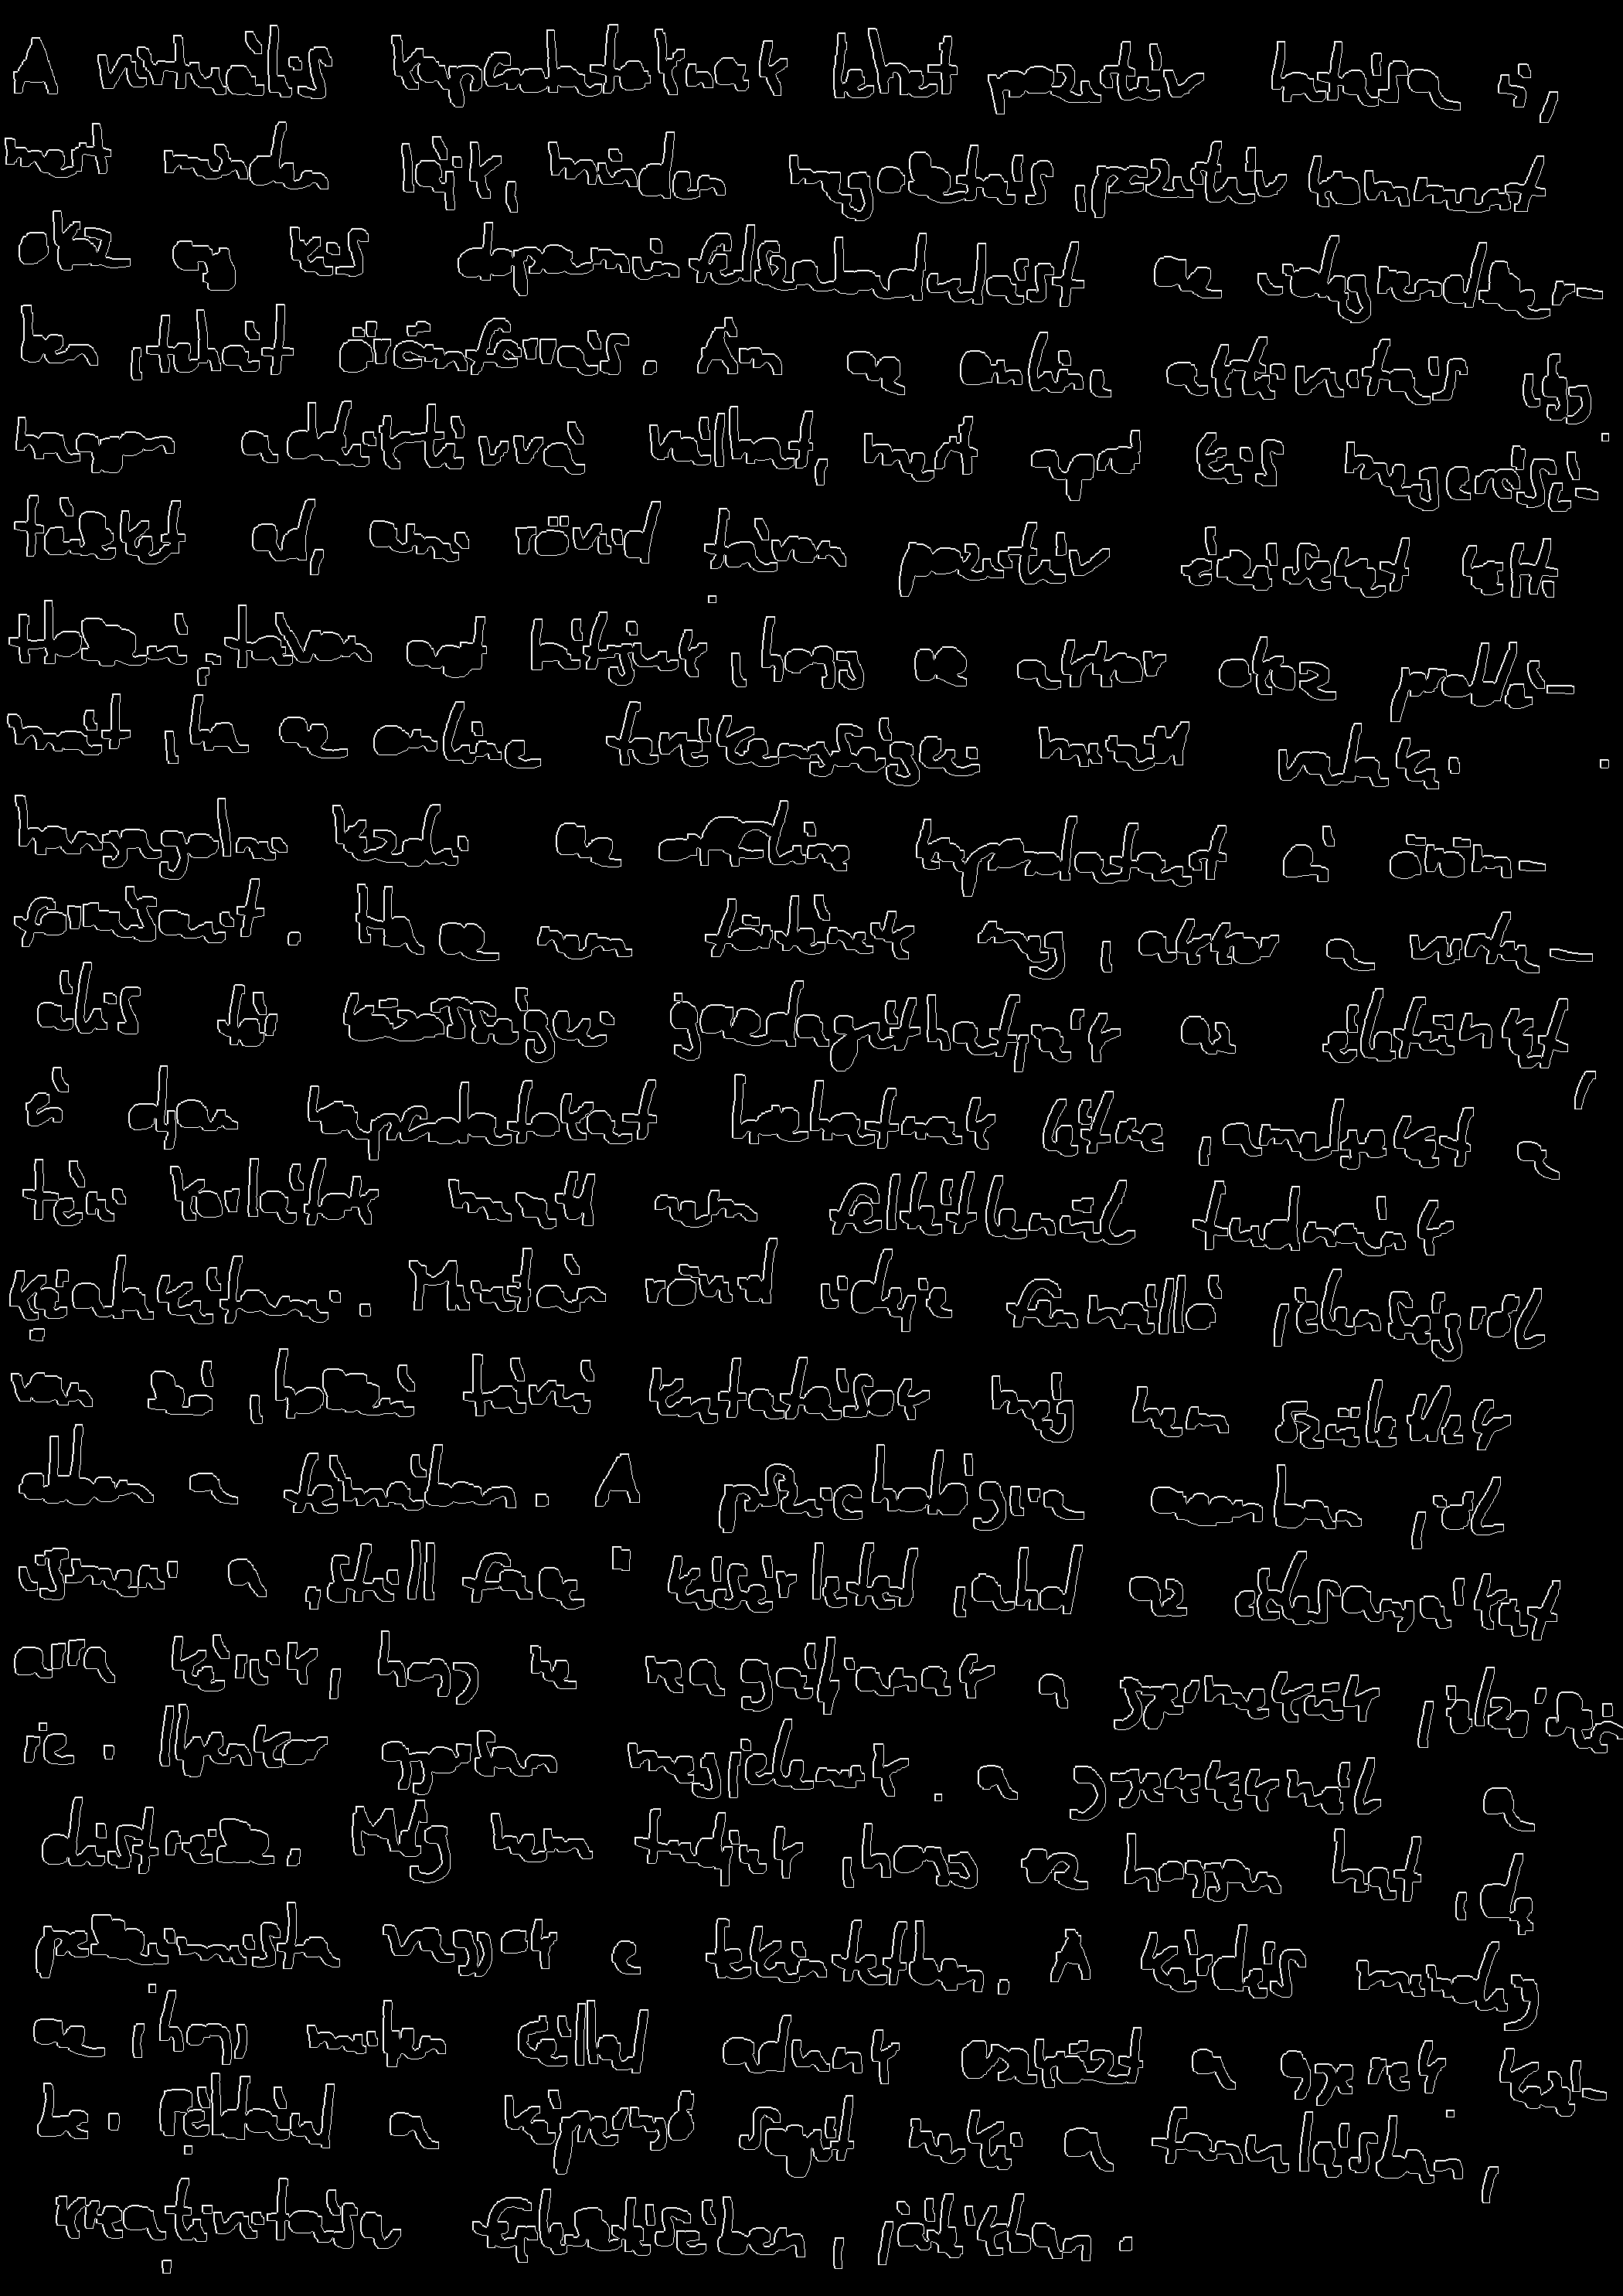 A virtuális kapcsolatoknak lehet pozitív hatása is,
mert minden lájk, minden megosztás, pozitív komment
okoz egy kis dopamin felszabadulást az idegrendszer-
ben, tehát örömforrás. Ám az online aktivitás így
hamar addiktívvá válhat, mert apad kis megerősí-
téseket ad, ami rövid távon pozitív érzéseket kelt.
Hosszú távon azt hihetjük, hogy az akkor okoz problé-
mát, ha az online tevékenységei miatt valaki
hanyagolni kezdi az offline kapcsolatait és öröm-
forrásait. Ha ez nem történik meg, akkor a virtu-
ális tér közösségei gazdagíthatják az életünket,
és olyan kapcsolatokat hozhatnak létre, amelyeket a
téri korlátok miatt nem feltétlenül tudnánk
kialakítani. Miután rövid ideje fennálló jelenségről
van szó, hosszú távú kutatások még nem születtek
ebben a témában. A pszichológia azonban jól
ismeri a „still face" kísérletet, ahol az édesanyákat
arra kérik, hogy ne reagáljanak a gyermekük jelzései-
re. Ilyenkor gyorsan megjelenik a gyerekeknél a
distressz. Még nem tudjuk, hogy ez hogyan hat, de
pesszimista vagyok e tekintetben. A kérdés mindig
az, hogy milyen céllal adunk eszközt a gyerek kezé-
be. Például a képernyő segít neki a tanulásban,
kreativitása fejlesztésében, játékban.